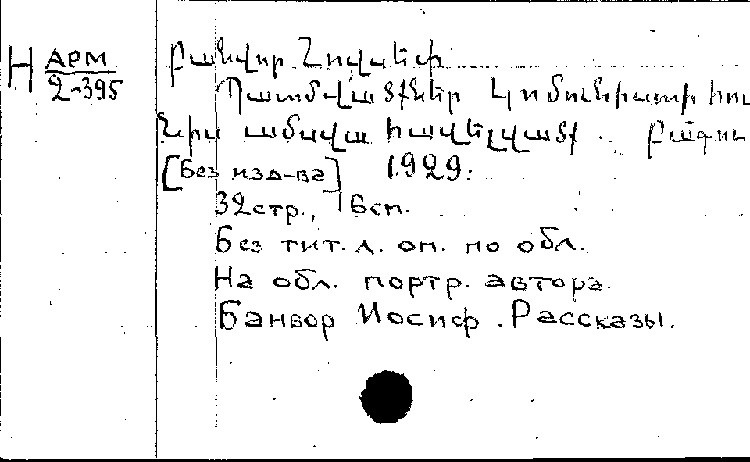 Н АРМ
2-395
Բանվոր Հովսեփ
Պատմվածքներ Կոմունիստի հու
նիս ամսվա հավելված . Բագու
[Без изд-ва] 1929.
32стр., 16сп.
Без тит. л. оп. по обл.
На обл. портр. автора.
Банвор Иосиф . Рассказы.